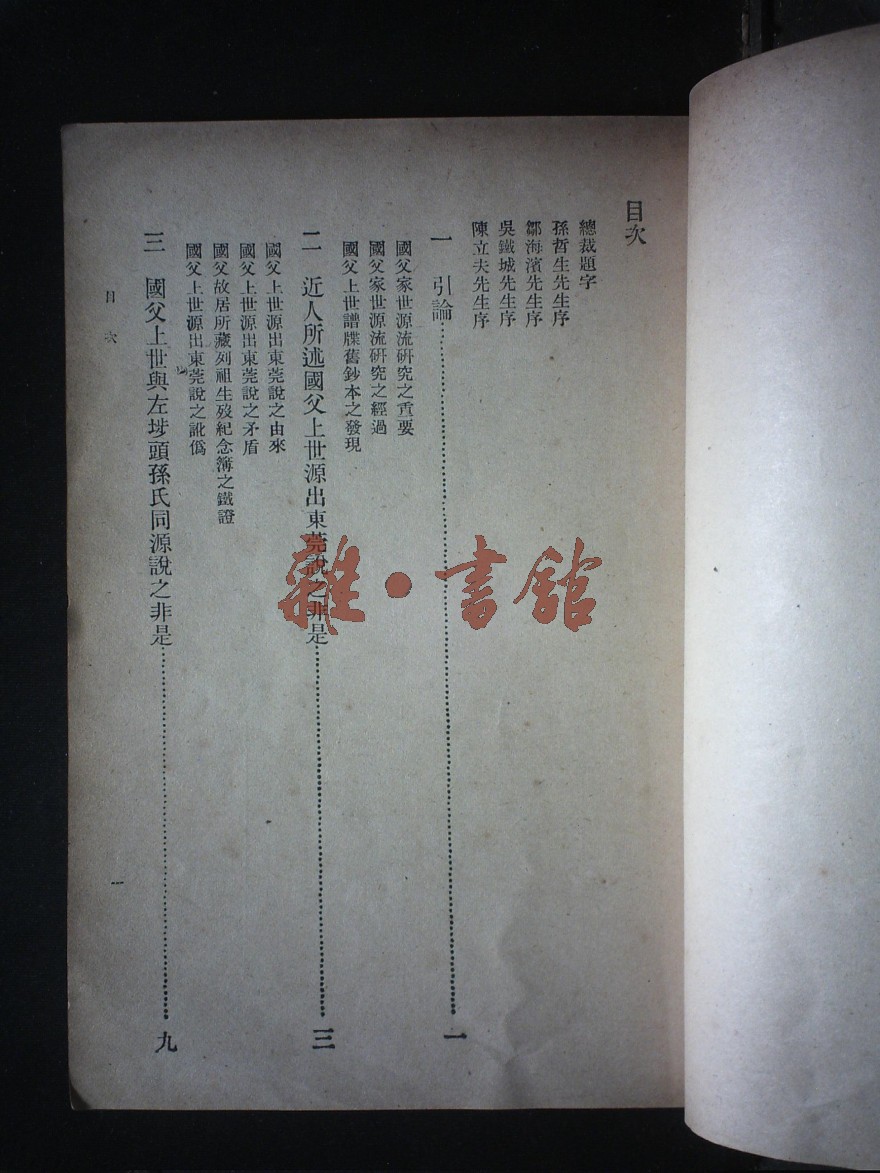 目次
總裁題字
孫哲生先生序
鄒海濱先生序
吳鐵城先生序
陳立夫先生序
一 引論……一
國父家世源流研究之重要
國父家世源流研究之經過
國父上世譜牒舊鈔本之發現
二 近人所述國父上世源出東莞說之非是……三
國父上世源出東莞說之由來
國父上世源出東莞說之矛盾
國父故居所藏列祖生歿紀念簿之鐵證
國父上世源出東莞說之訛僞
三 國父上世與左埗頭孫氏同源說之非是……九
目次
一
雜·書館